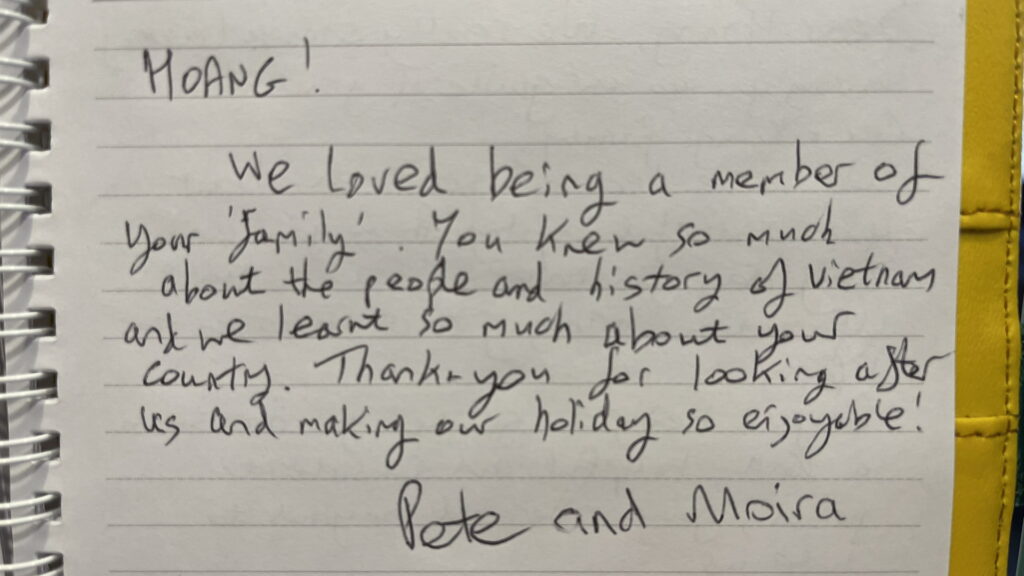 HOANG!
We loved being a member of
your 'family'. You knew so much
about the people and history of Vietnam
and we learnt so much about your
country. Thank-you for looking after
us and making our holiday so enjoyable!
Pete and Moira